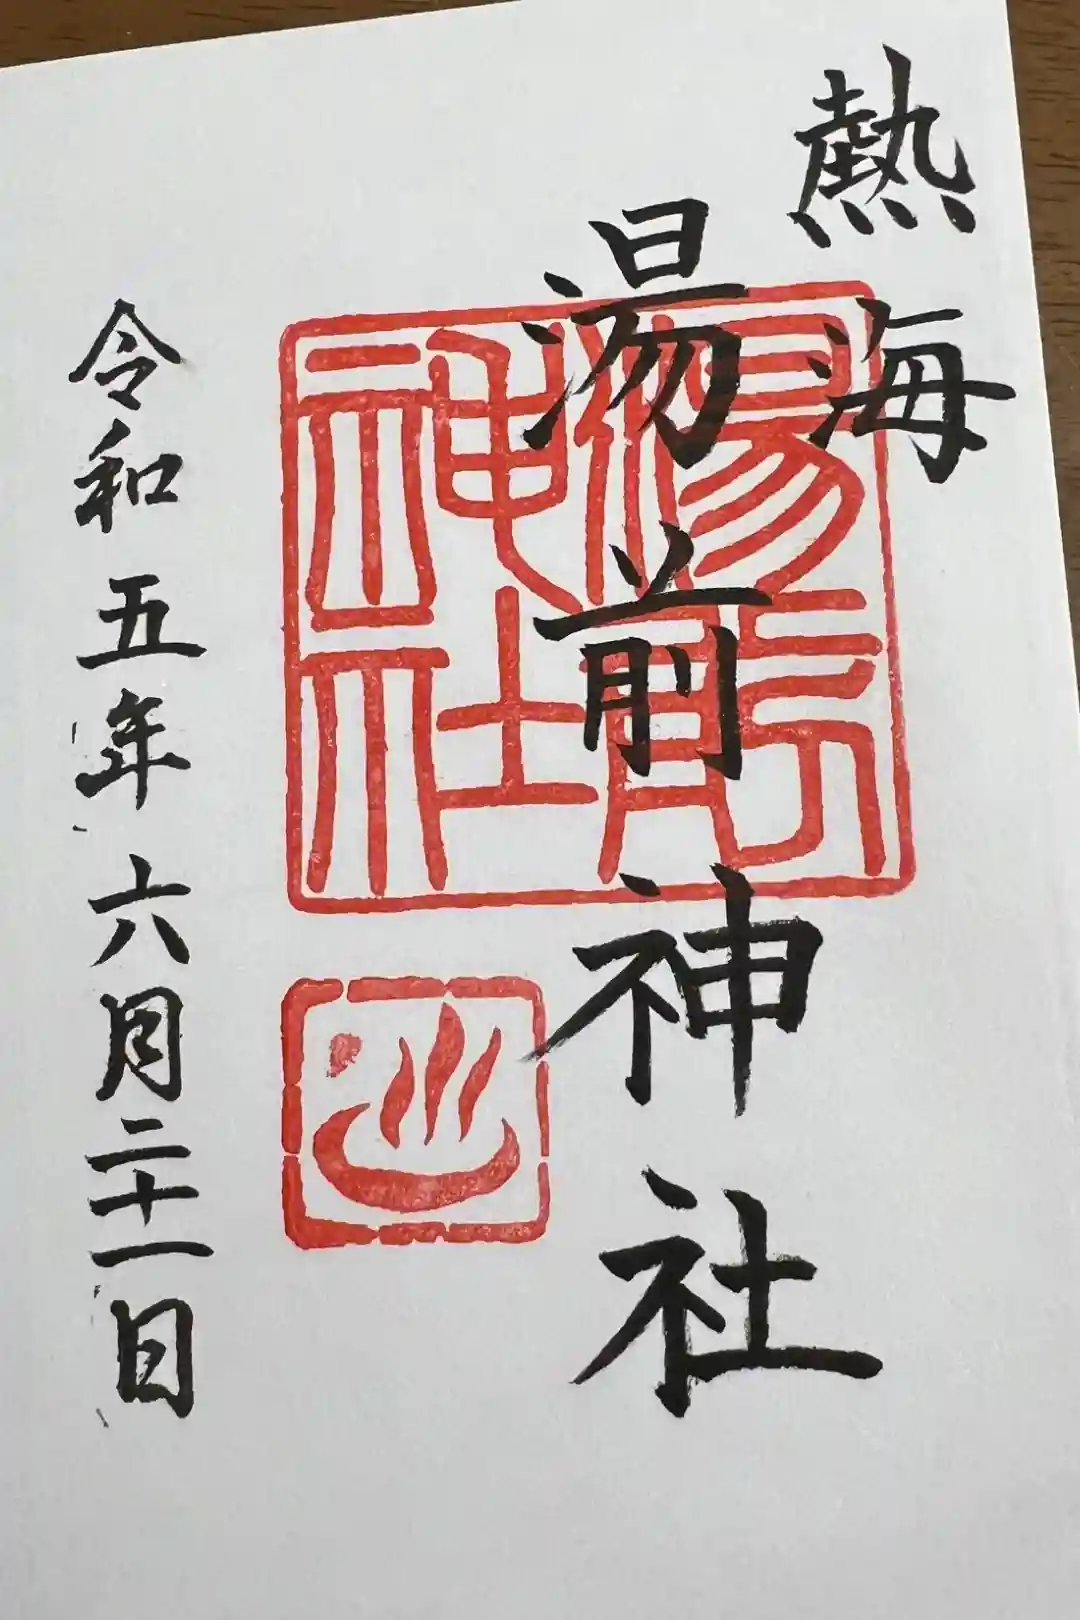 熱海
湯前神社
湯前
神社
令和五年六月二十一日